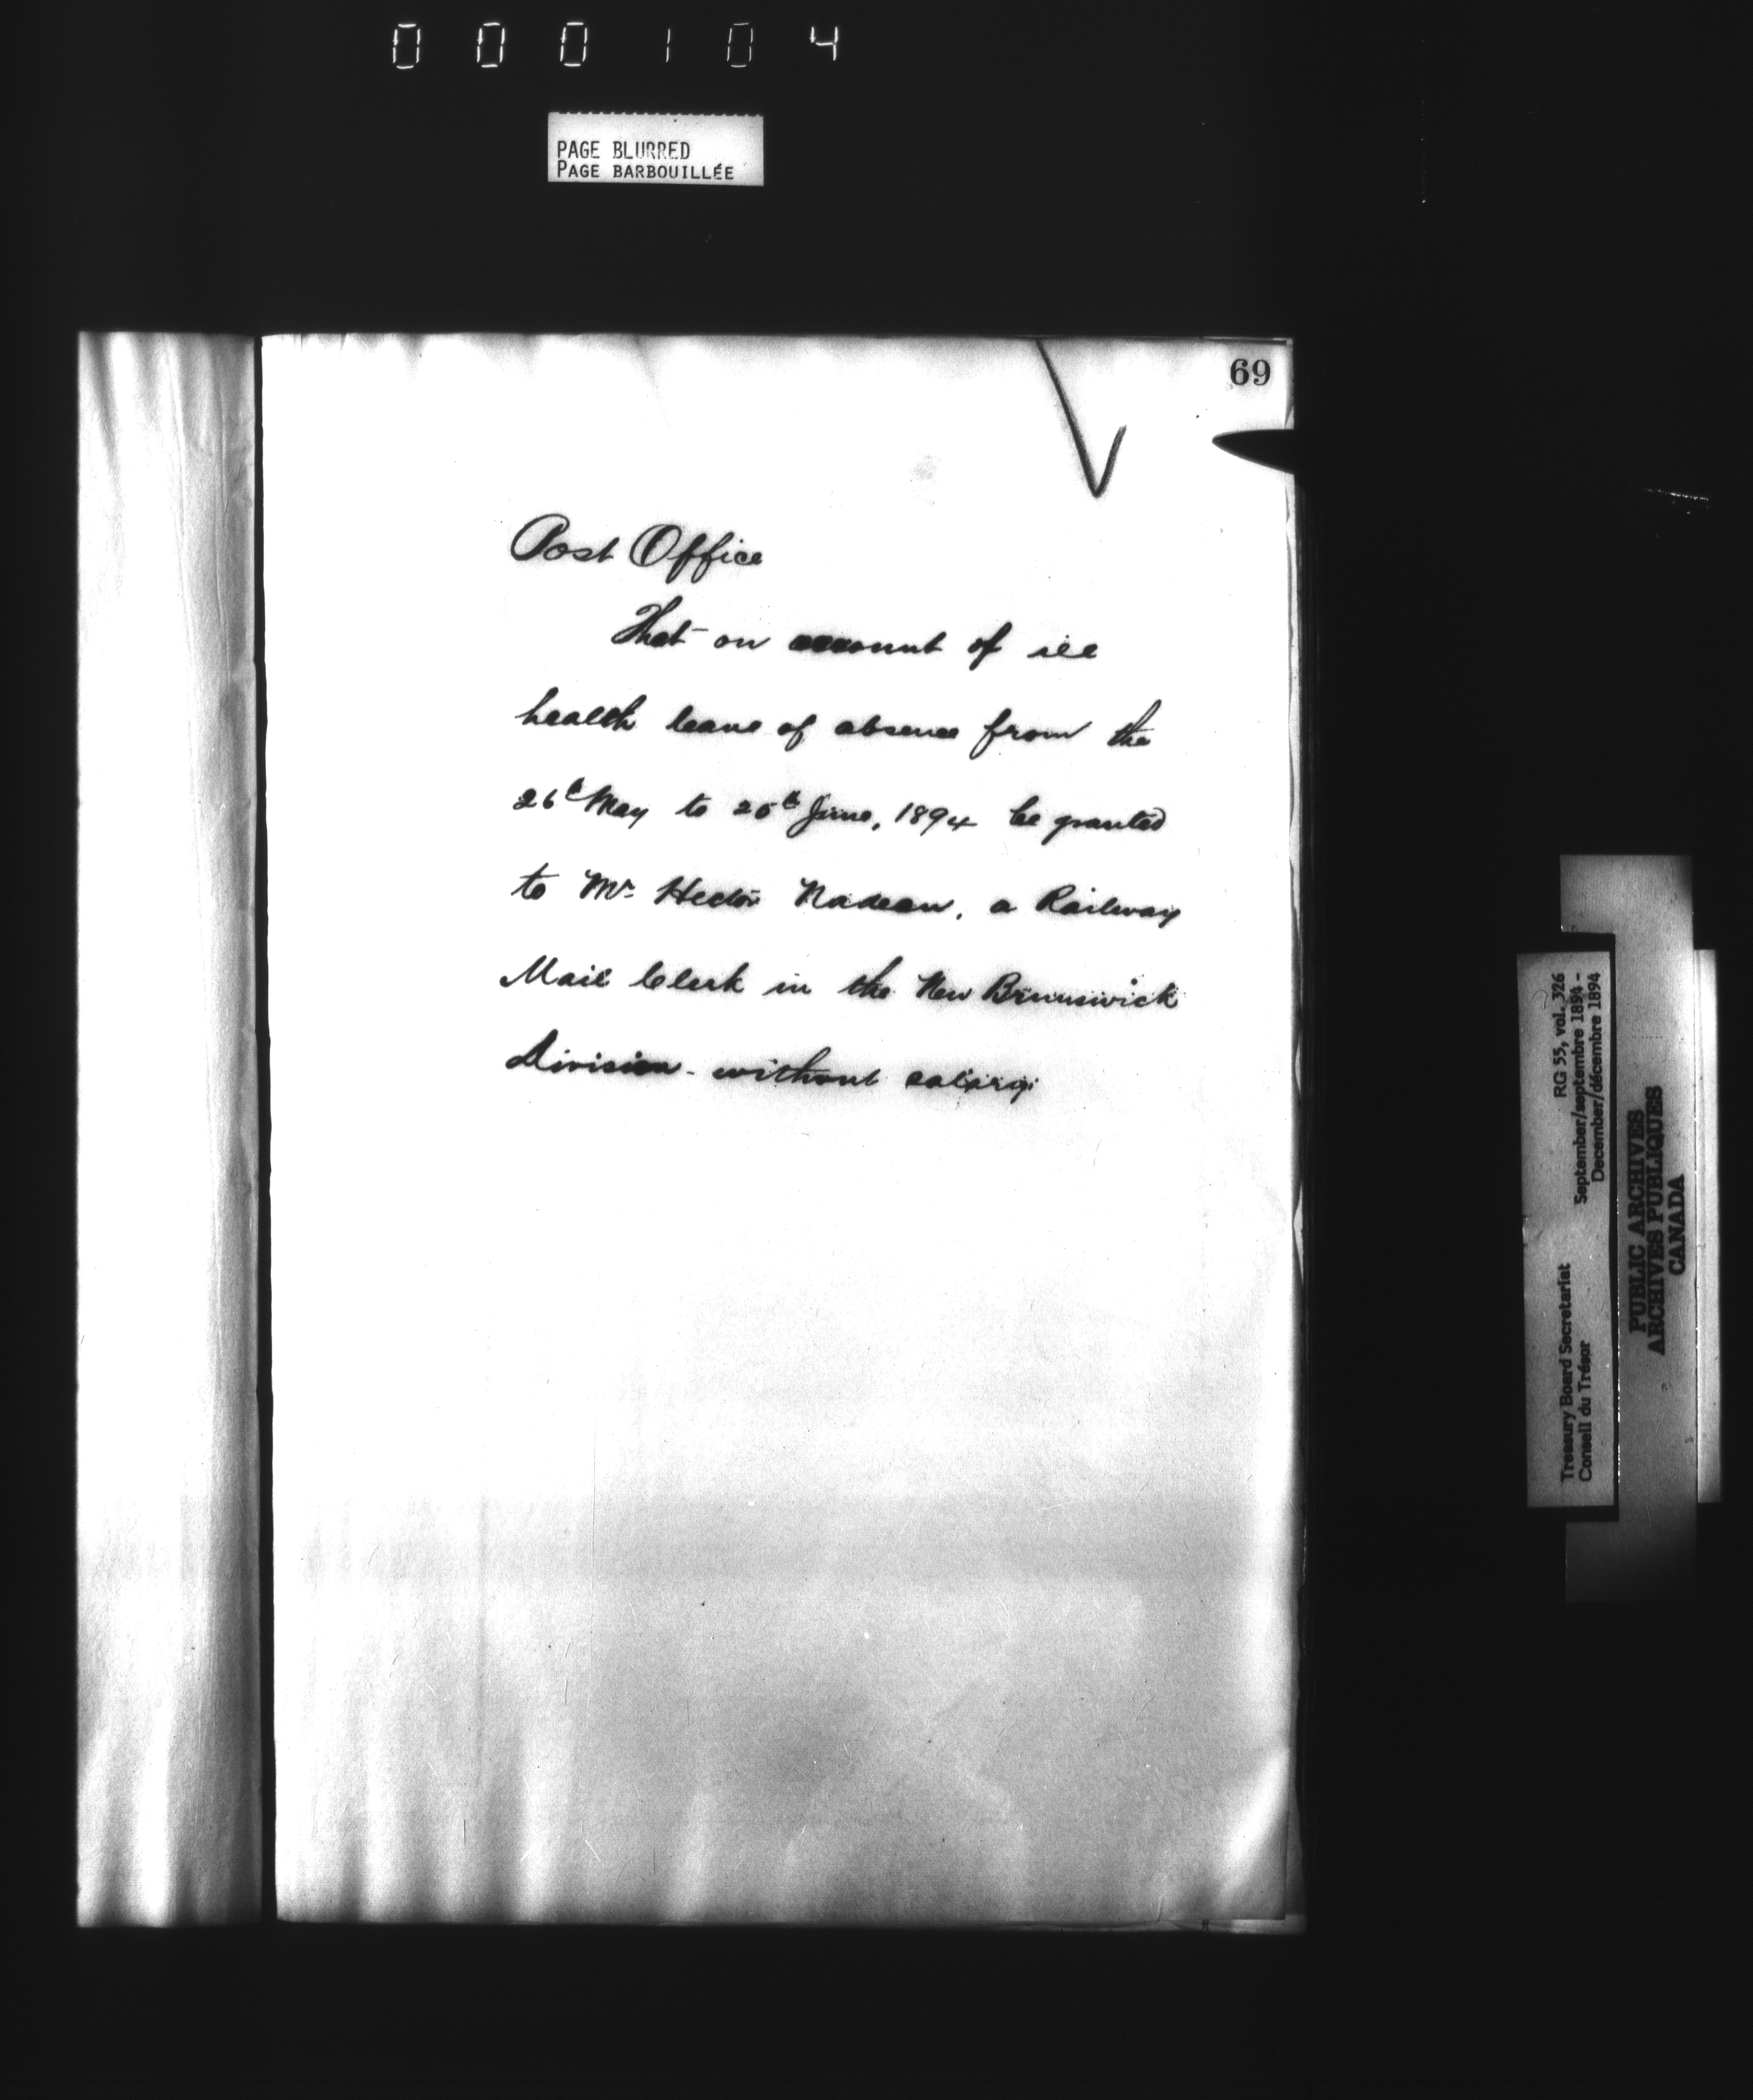 000104
PAGE BLURRED
PAGE BARBOUILLÉE
69
Post Office
That on account of ill
health leave of absence from the
26th May to 20th June, 1894 be granted
to Mr. Hector Nadeau, a Railway
Mail Clerk in the New Brunswick
Division - without salary.
Treasury Board Secretariat RG 55, vol. 326
Conseil du Trésor September/septembre 1894 -
December/décembre 1894
PUBLIC ARCHIVES
ARCHIVES PUBLIQUES
CANADA